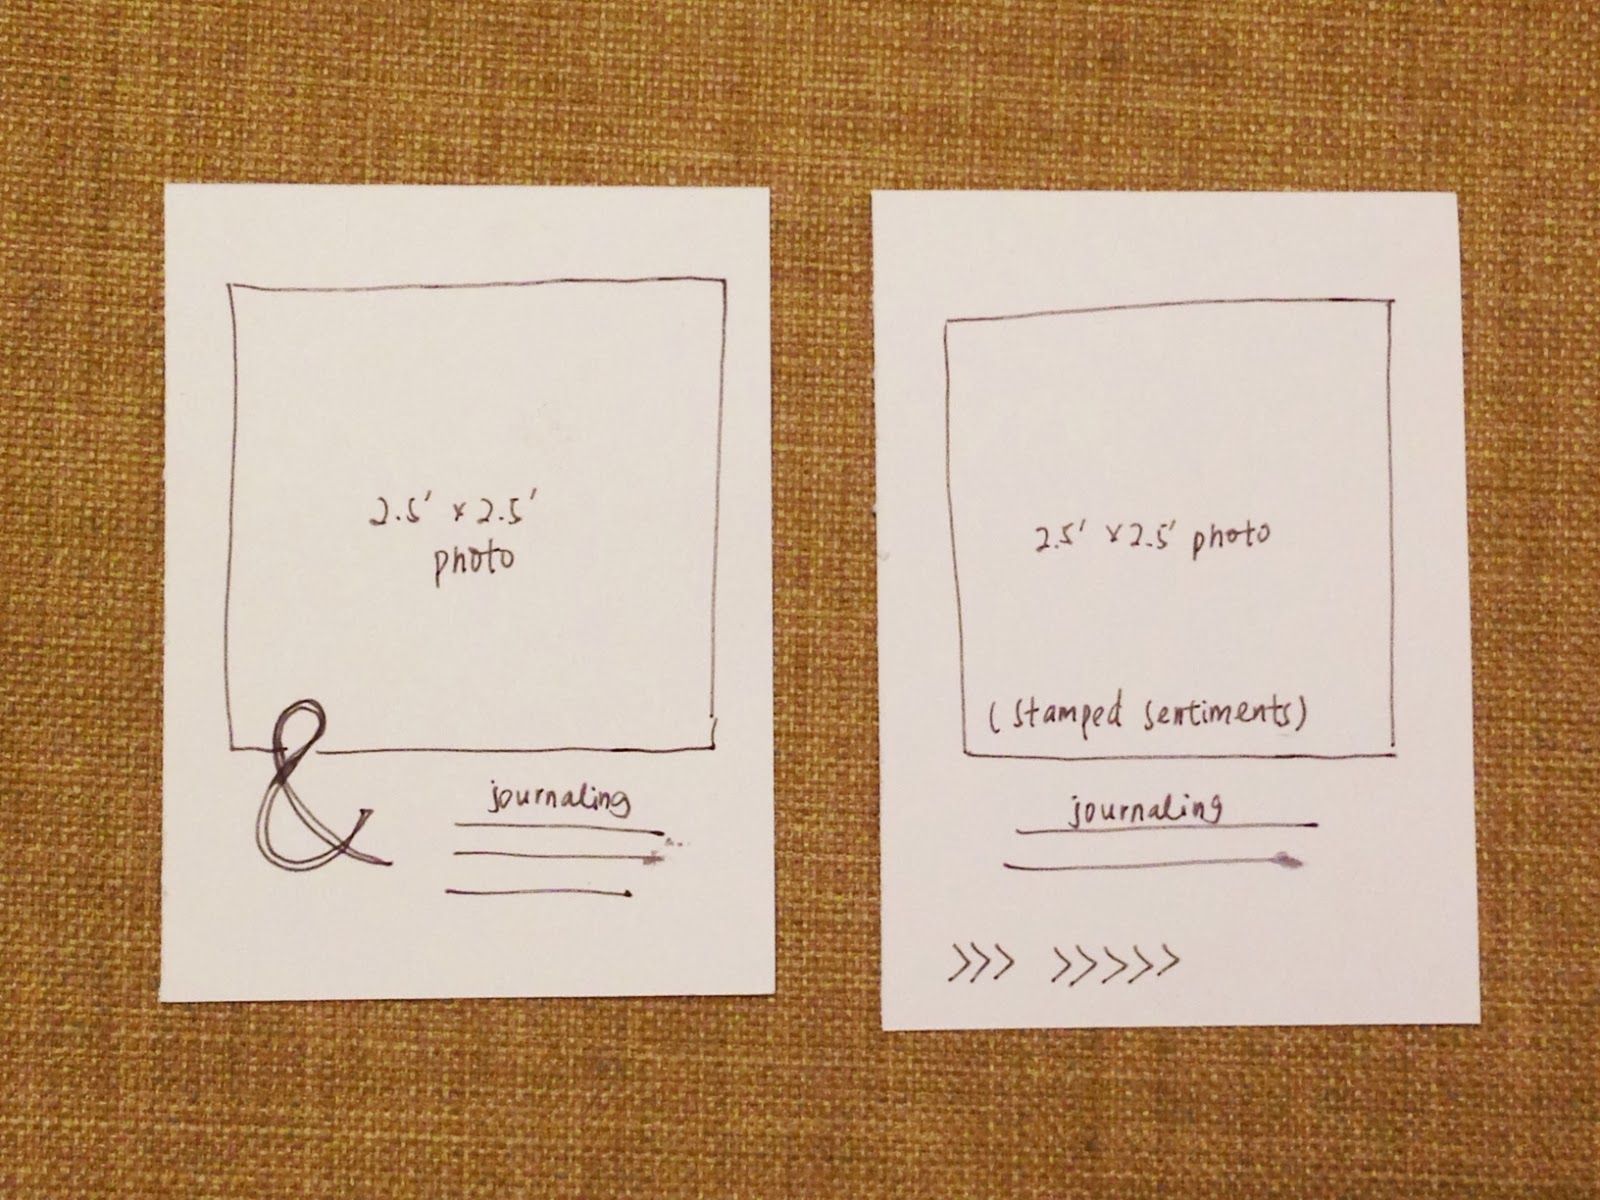 2.5' x 2.5'
photo
&
journaling
2.5' x 2.5' photo
(stamped sentiments)
journaling
>>> >>>>>